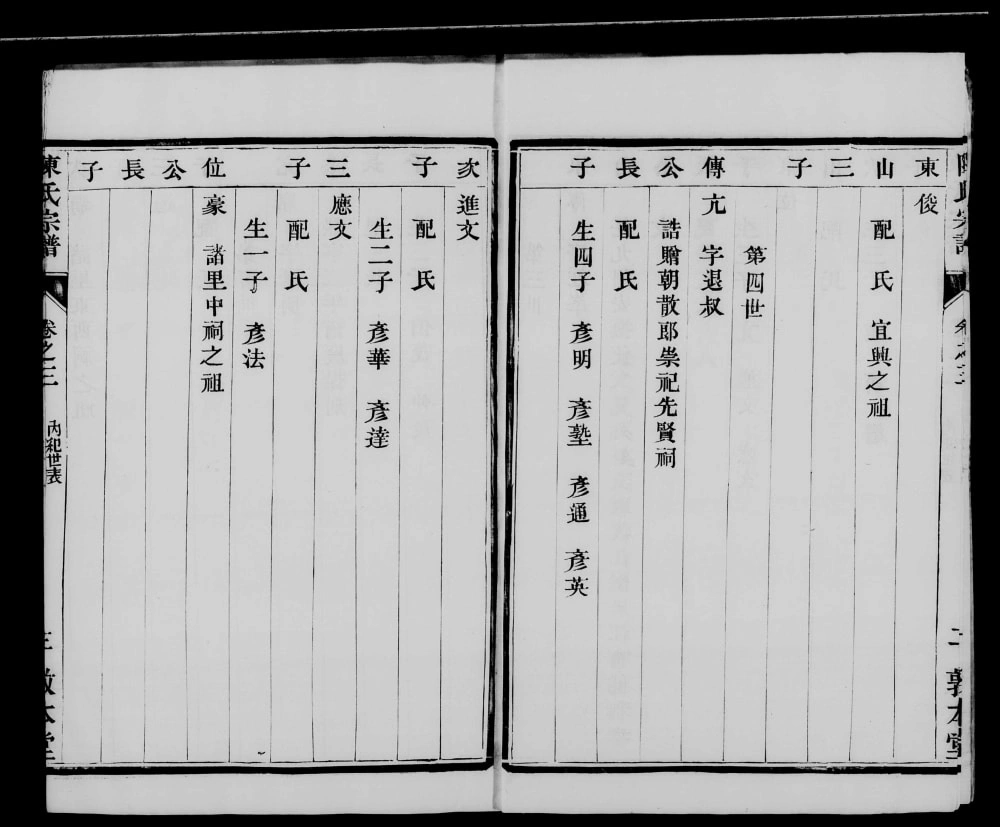 陳氏宗譜 卷之三 二 敦本堂
東 俊
山 配 氏 宜興之祖
三
子
第四世
傳 亢 字退叔
公 誥贈朝散郎崇祀先賢祠
長 配 氏
子 生四子 彥明 彥塾 彥通 彥英
次 進文
子 配 氏
生二子 彥華 彥達
三 應文
子 配 氏
生一子 彥法
位 豪 諸里中祠之祖
公
長
子
陳氏宗譜 卷之三 內紀世表 三 敦本堂